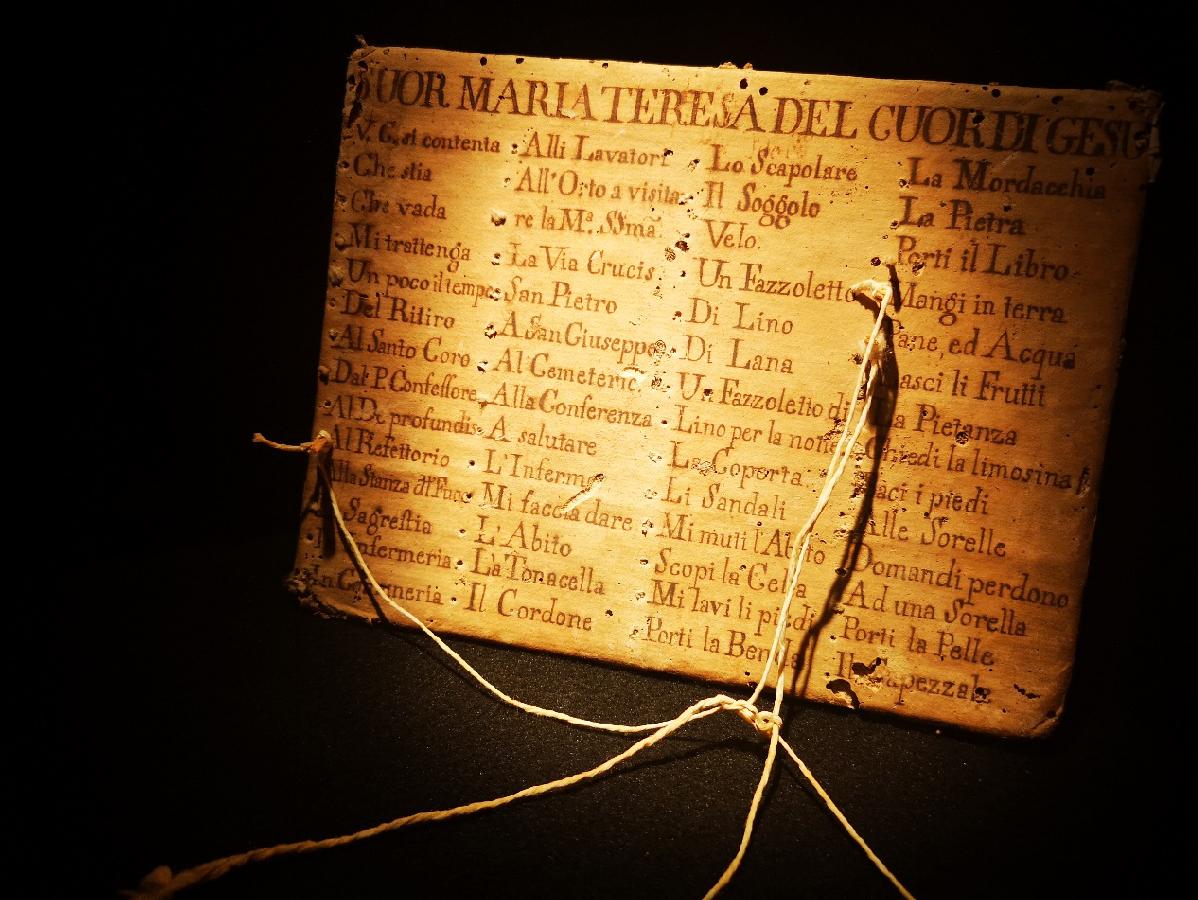 SUOR MARIA TERESA DEL CUOR DI GESU
V. C. si contenta
Che stia
Che vada
Mi trattenga
Un poco il tempo
Del Ritiro
Al Santo Coro
Dal P. Confessore
Al De profundis
Al Refettorio
Alla Stanza dl Fuoc
Sagrestia
Infermeria
In C
Alli Lavatori
All'Orto a visita
re la Mª. SSmã
La Via Crucis
San Pietro
A San Giuseppe
Al Cemeterio
Alla Conferenza
A salutare
L'Inferma
Mi faccia dare
L'Abito
La Tonacella
Il Cordone
Lo Scapolare
Il Soggolo
Velo.
Un Fazzoletto
Di Lino
Di Lana
Un Fazzoletto di
Lino per la notte
La Coperta
Li Sandali
Mi muti l'Abito
Scopi la Cella
Mi lavi li piedi
Porti la Benda
La Mordacchia
La Pietra
Porti il Libro
Mangi in terra
Pane, ed Acqua
Lasci li Frutti
La Pietanza
Chiedi la limosina
Baci i piedi
Alle Sorelle
Domandi perdono
Ad una Sorella
Porti la Pelle
Il Capezzale